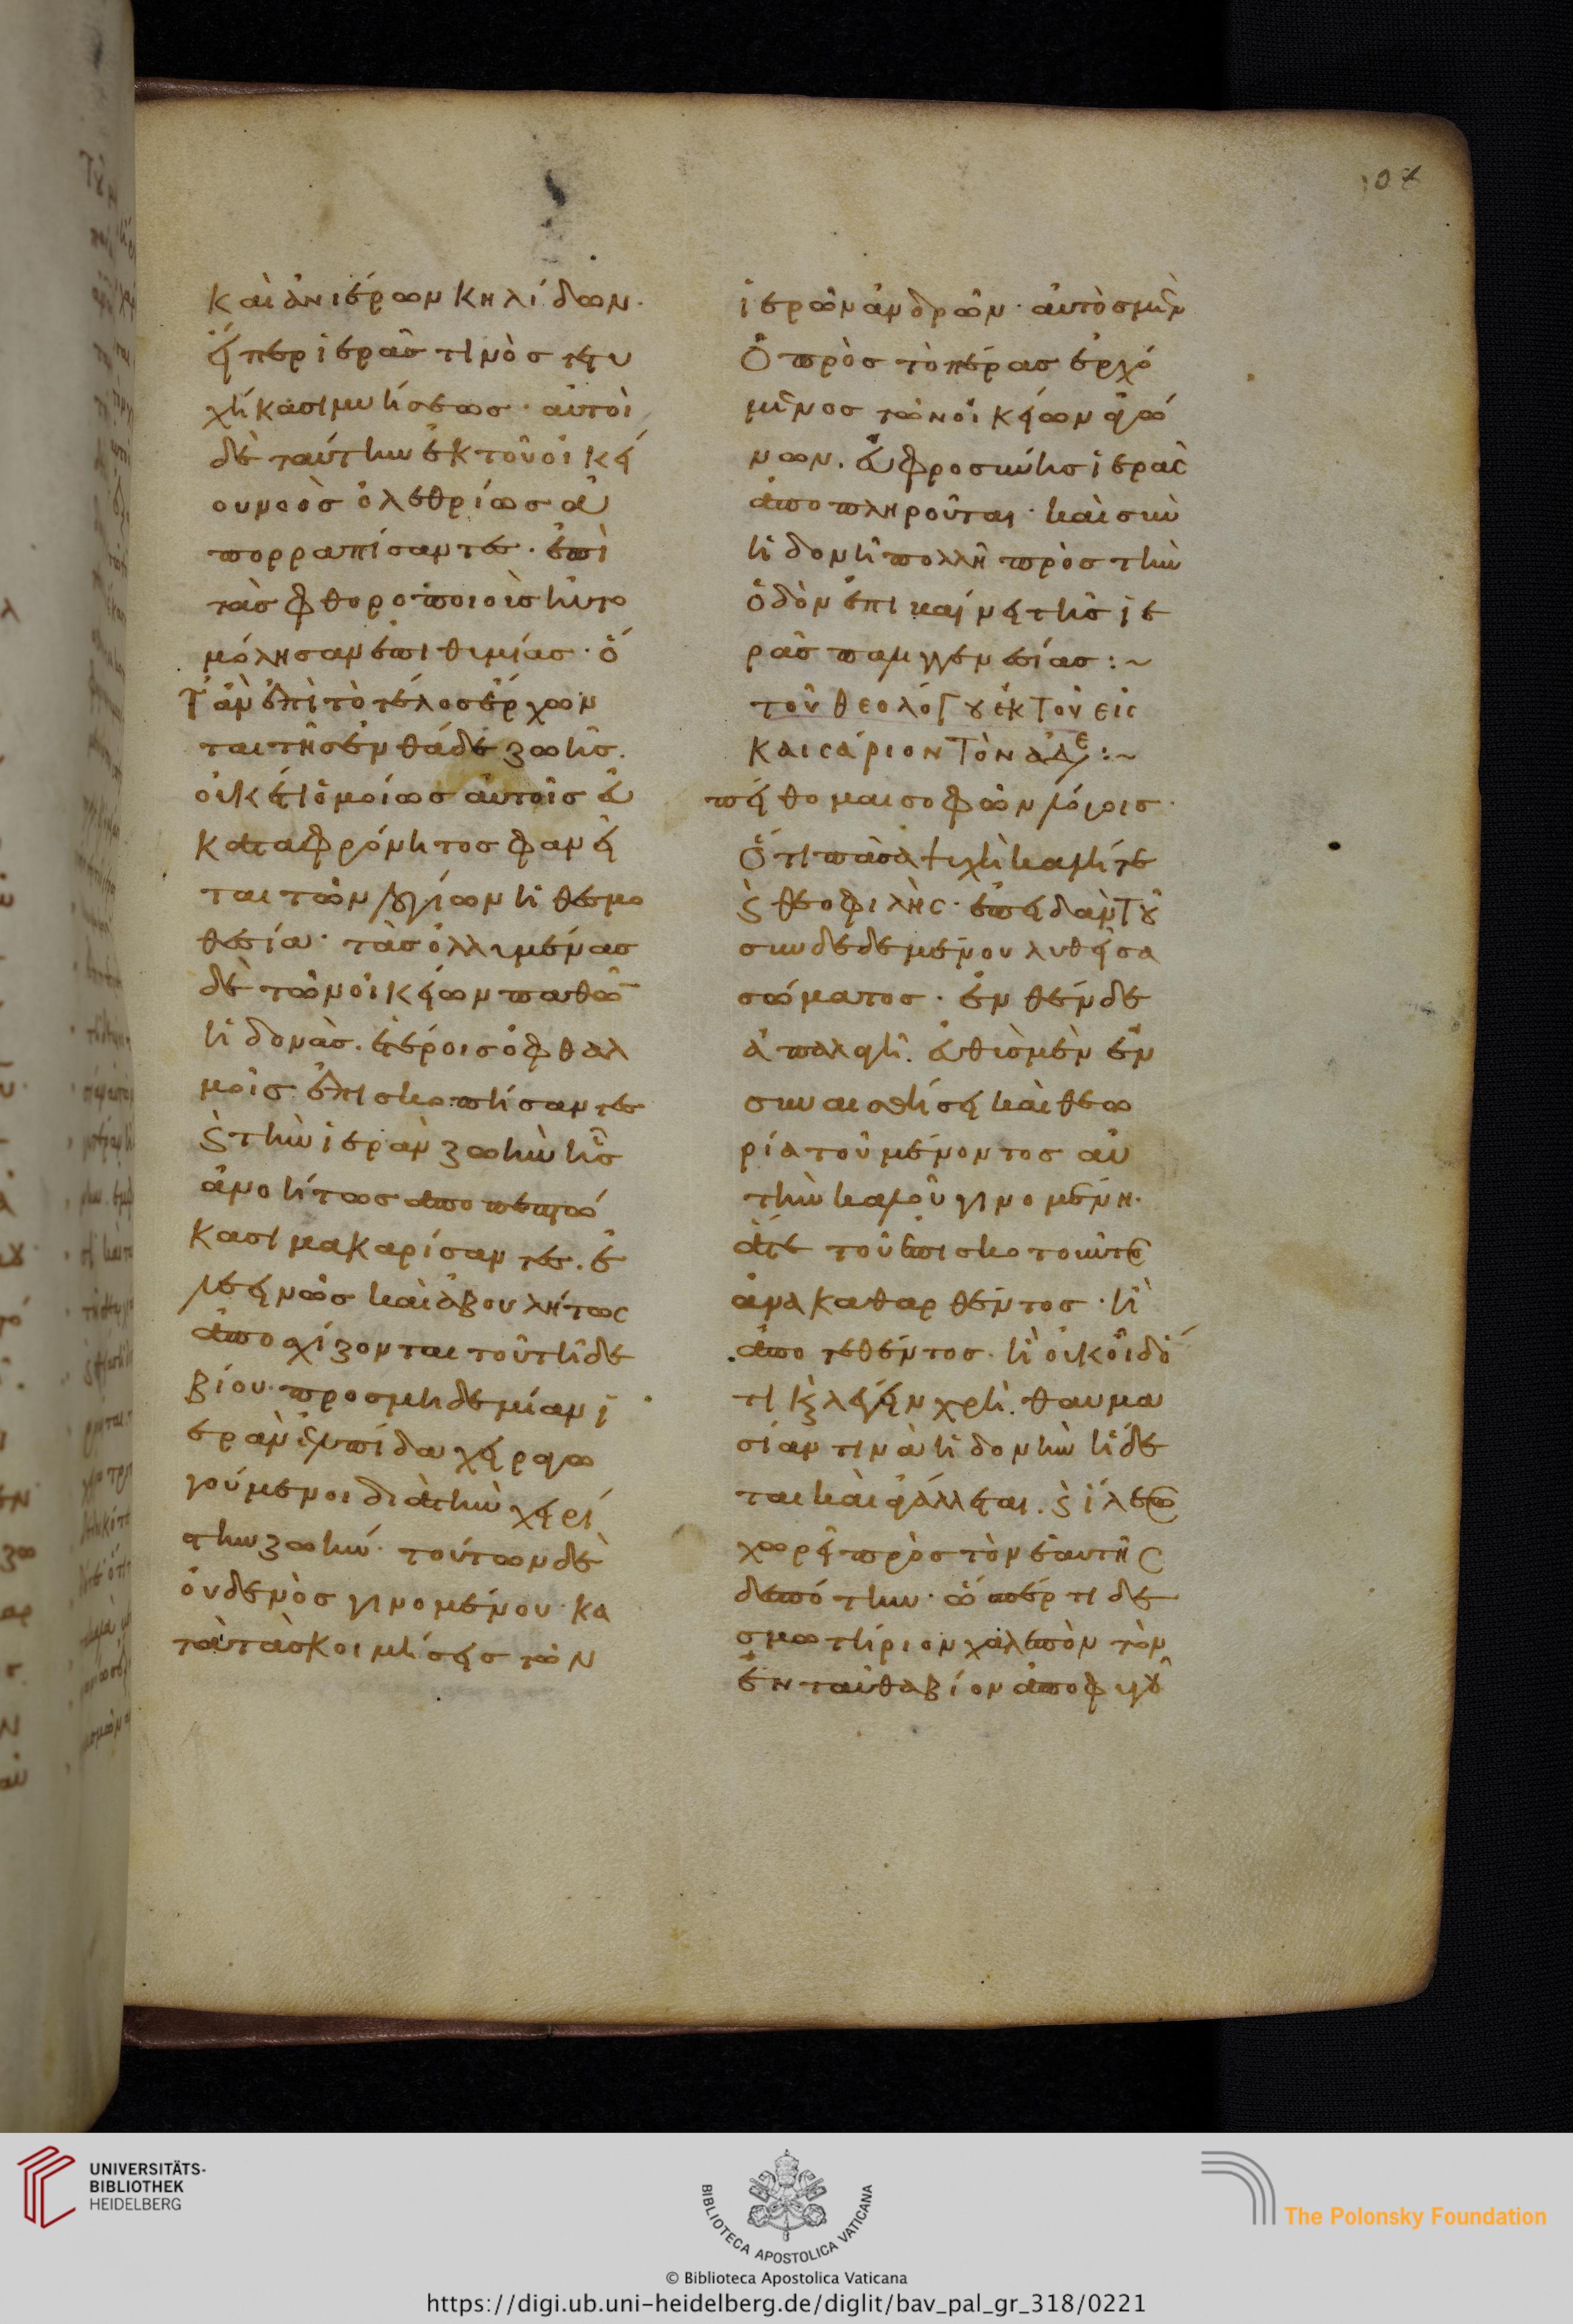 107
καὶ ἀνιέρων κηλίδων·
εἴπερ ἱερᾶς τινὸς τετυ
χήκασι μυήσεως· αὐτοὶ
δὲ ταύτην ἐκ τοῦ οἰκεί
ου νοὸς ὀλεθρίως ἀ
πορραπίσαντες· ἐπὶ
τὰς φθοροποιοὺς ηὐτο
μόλησαν ἐπιθυμίας· ὅ
τἂν ἐπὶ τὸ τέλος ἔρχων
ται τῆς ἐνθάδε ζωῆς·
οὐκέτι ὁμοίως αὐτοῖς εὐ
καταφρόνητος φανεῖ
ται τῶν λογίων ἡ θεσμο
θεσία· τὰς ὀλλυμένας
δὲ τῶν οἰκείων παθῶν
ἡδονὰς· ἑτέροις ὀφθαλ
μοῖς ἐπισκοπήσαντες
καὶ τὴν ἱερὰν ζωὴν ἧς
ἀνοήτως ἀποπεπτώ
κασι μακαρίσαντες· ἐ
λεεινῶς καὶ ἀβουλήτως
ἀποσχίζονται τοῦ τῇδε
βίου· πρὸς μηδεμίαν ἱ
ερὰν ἐλπίδα χειραγω
γούμενοι διὰ τὴν χειρί
στην ζωήν· τούτων δὲ
οὐδενὸς γινομένου κα
τὰ τὰς κοιμήσεις τῶν
ἱερῶν ἀνδρῶν· αὐτὸς μὲν
ὁ πρὸς τὸ πέρας ἐρχό
μενος τῶν οἰκείων ἀγώ
νων· εὐφροσύνης ἱερᾶς
ἀποπληροῦται· καὶ σὺν
ἡδονῇ πολλῇ πρὸς τὴν
ὁδὸν ἐπιβαίνει τῆς ἱε
ρᾶς παλιγγενεσίας :~
τοῦ θεολόγου ἐκ τοῦ εἰς
καισάριον τὸν ἀδε :~
πείθομαι σοφῶν λόγοις·
ὅτι πᾶσα ψυχὴ καλή τε
καὶ θεοφιλὴς· ἐπειδὰν τοῦ
συνδεδεμένου λυθεῖσα
σώματος· ἐνθένδε
ἀπαλαγῇ· εὐθὺς μὲν ἐν
συναισθήσει καὶ θεω
ρία τοῦ μένοντος αὐ
τὴν καλοῦ γινομένη·
ἅτε τοῦ ἐπισκοτοῦντος
ἀνακαθαρθέντος· ἢ
ἀποτεθέντος· ἢ οὐκ οἶδ ὅ
τι καὶ λέγειν χρὴ· θαυμα
σίαν τινὰ ἡδονὴν ἥδε
ται καὶ ἀγάλλεται· καὶ ἵλεως
χωρεῖ πρὸς τὸν ἑαυτῆς
δεσπότην· ὥσπέρ τι δε
σμωτήριον χαλεπὸν τὸν
ἐνταῦθα βίον ἀποφυγοῦ
UNIVERSITÄTS-
BIBLIOTHEK
HEIDELBERG
BIBLIOTECA APOSTOLICA VATICANA
The Polonsky Foundation
© Biblioteca Apostolica Vaticana
https://digi.ub.uni-heidelberg.de/diglit/bav_pal_gr_318/0221